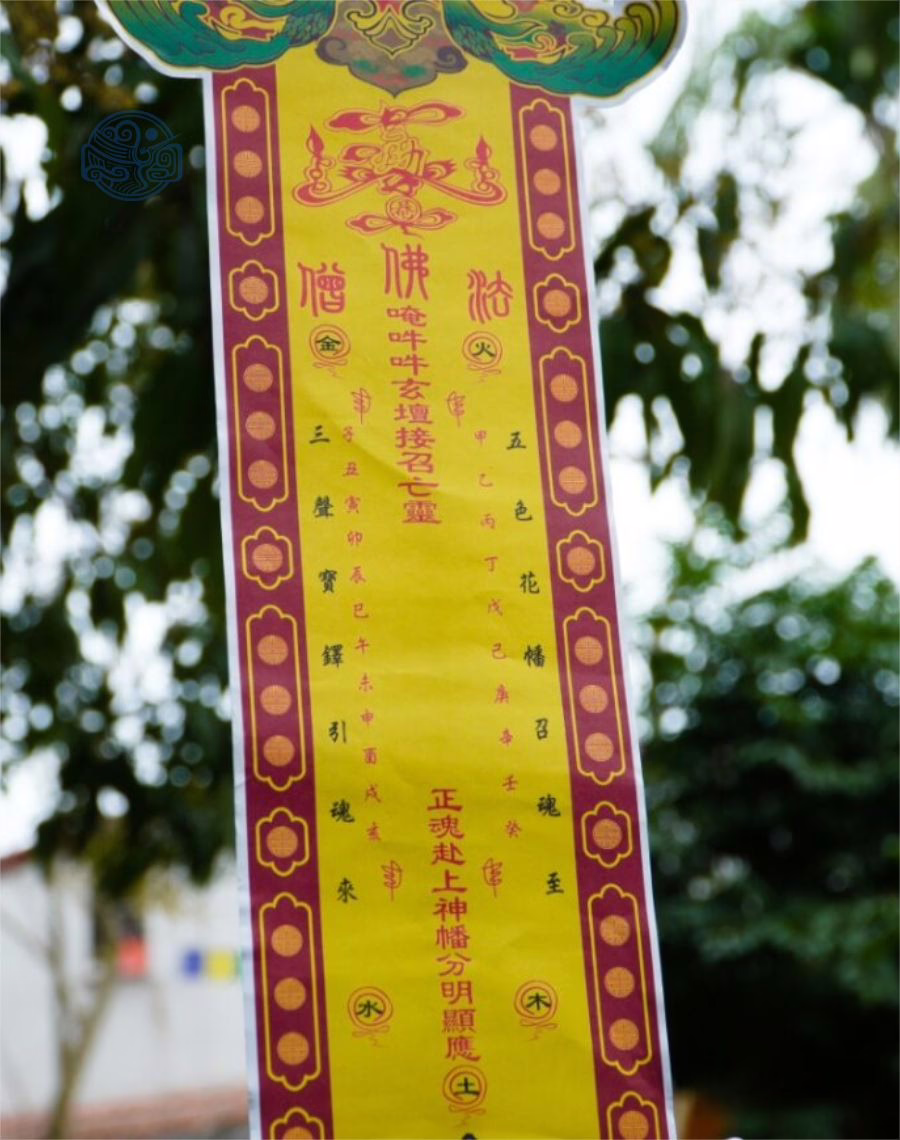 勅
佛
法
僧
火
金
唵吽吽玄壇接召亡靈
五色花幡召魂至
甲乙丙丁戊己庚辛壬癸
子丑寅卯辰巳午未申酉戌亥
三聲寶鐸引魂來
正魂赴上神幡分明顯應
木
水
土